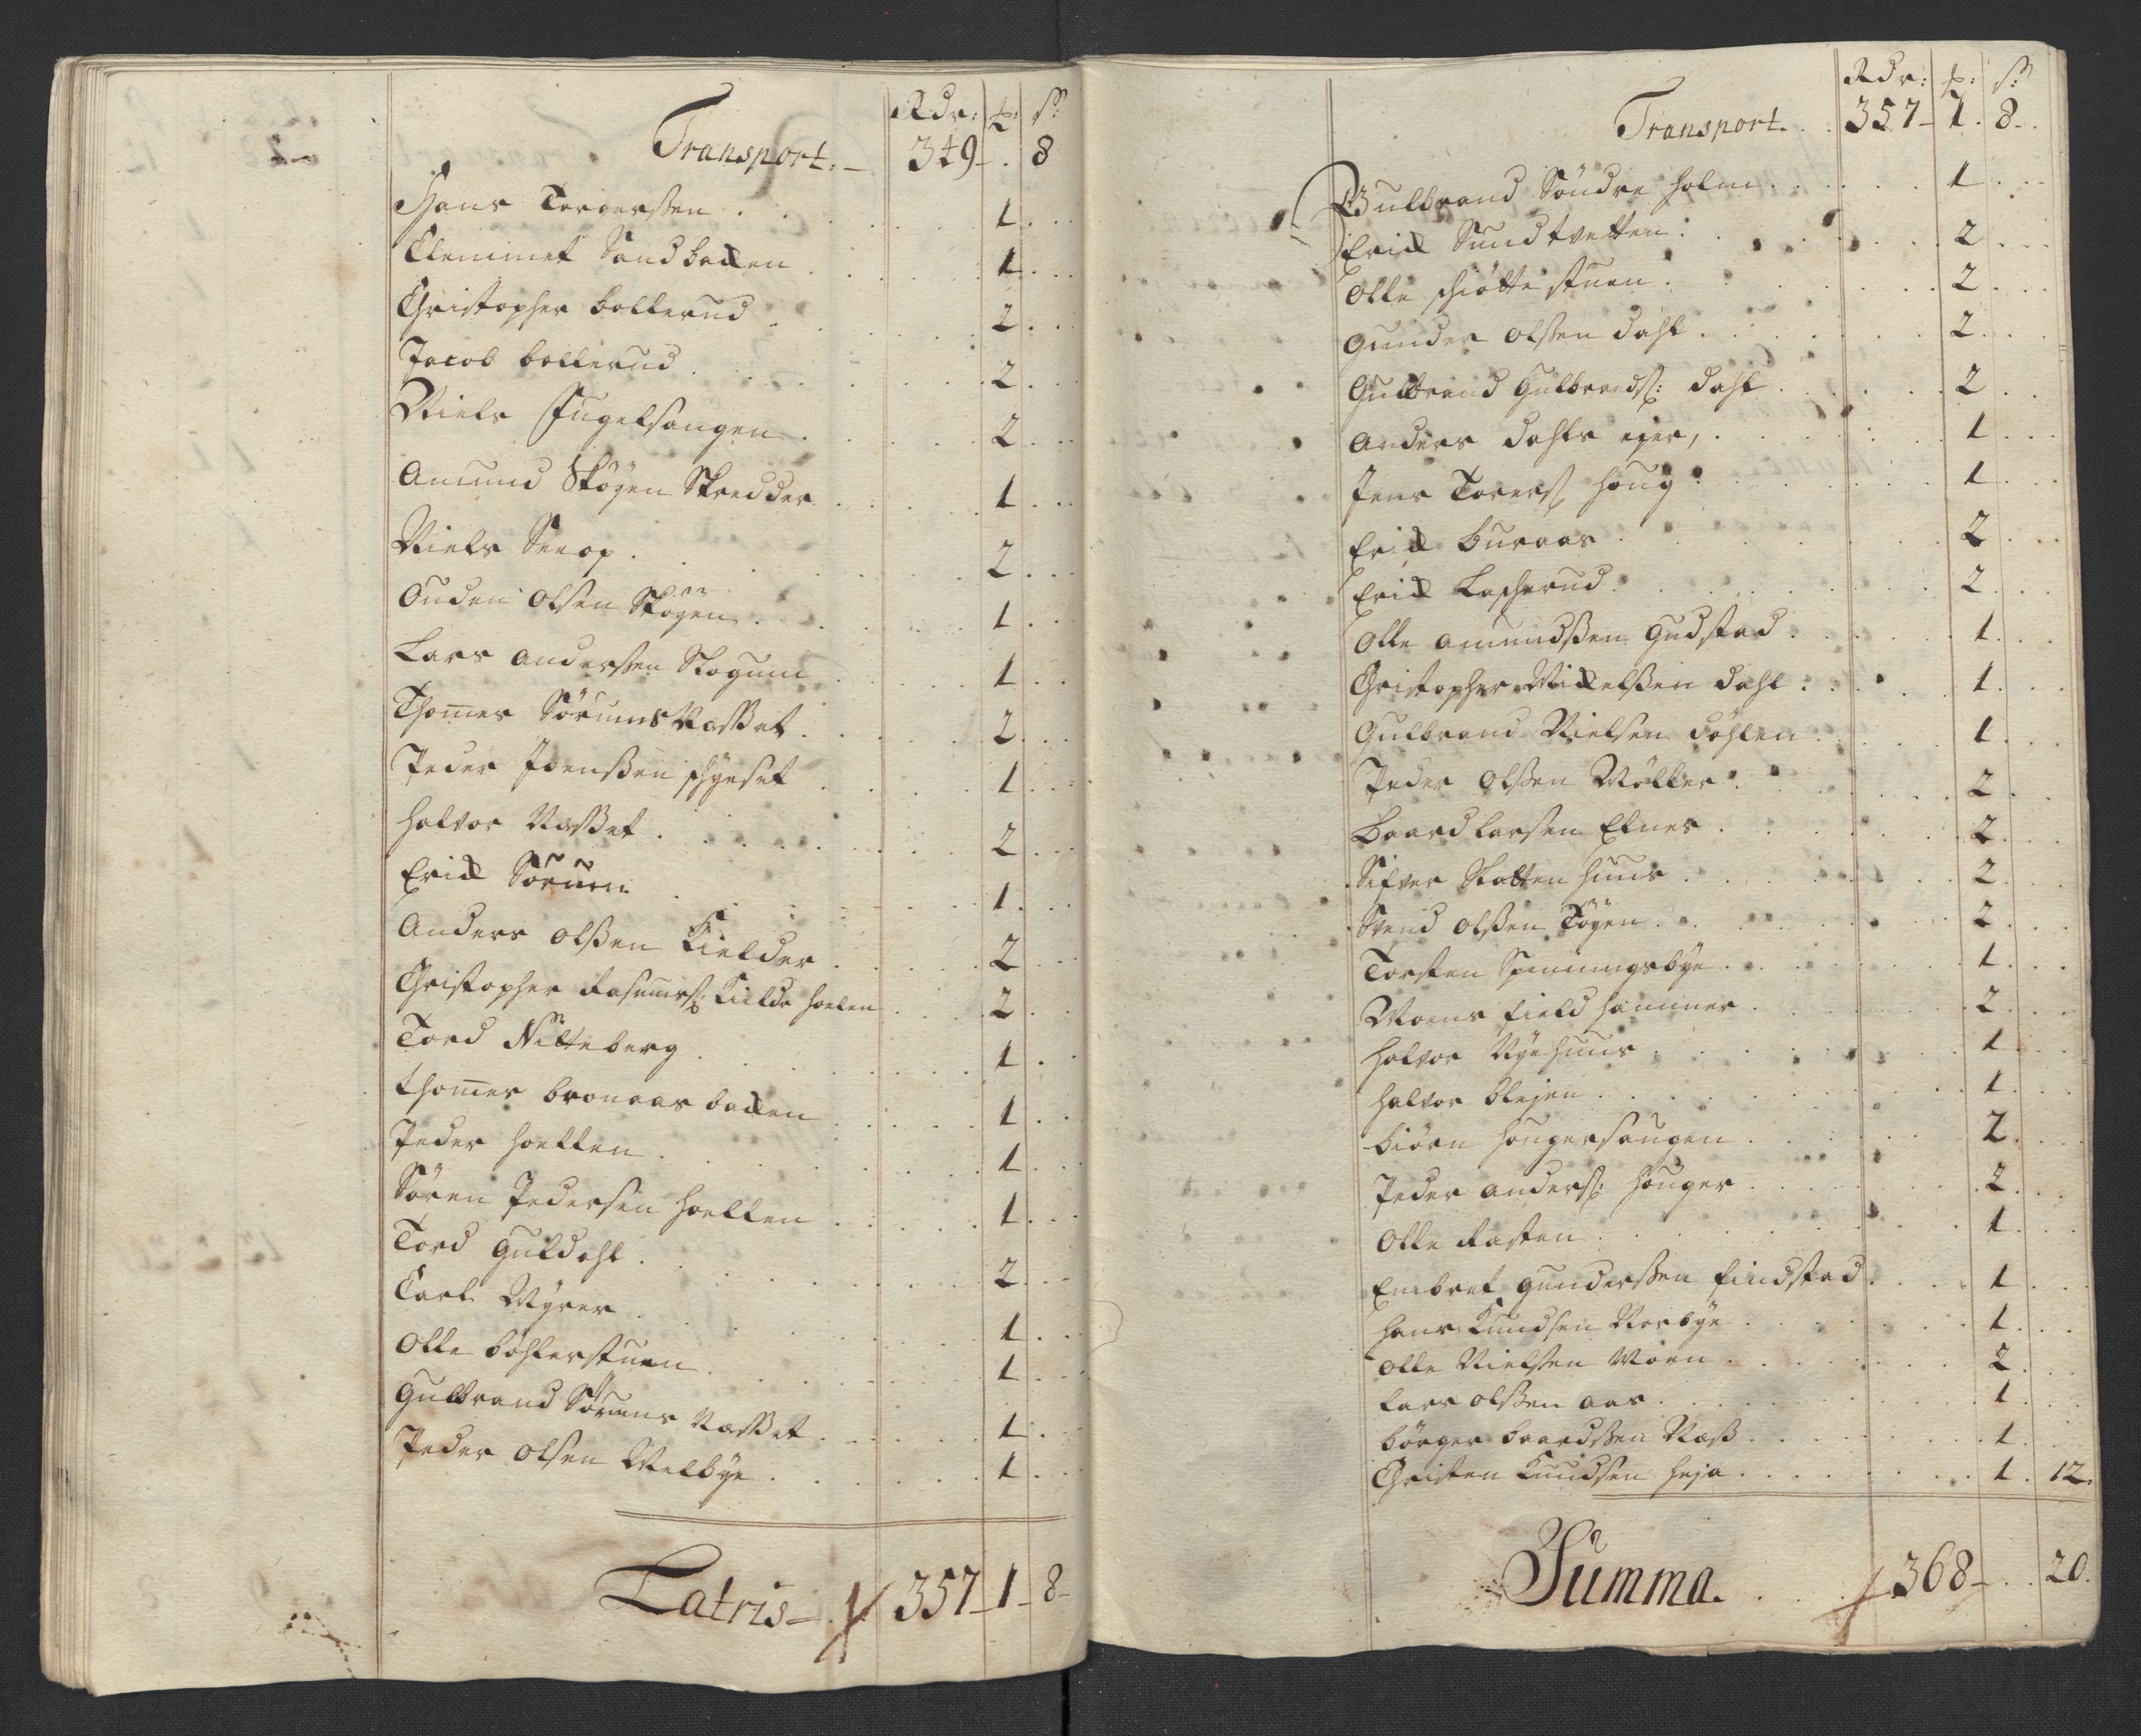 Rdr: ₰: ß:
Transport. – 349 – . 8
Hans Torgersen . . 1 . .
Clemmet Sandbacken . . 1 . .
Christopher bollerud . . 2 . .
Jacob bollerud . . 2 . .
Niels Fugelsangen . . 2 . .
Amund Skögen Skredder . . 1 . .
Niels Seeop . . 2 . .
Ouden Olsen Skögen . . 1 . .
Lars Andersen Skogum . . 1 . .
Thomes Sörums Næsset . . 2 . .
Peder Joenssen . . 1 . .
Halvor Næsset . . 2 . .
Erick Sörum . . 1 . .
Anders Olssen Kielder . . 2 . .
Christopher Rasmuss: Kielde hoelen . . 2 . .
Tord Nitteberg . . 1 . .
Thomes bronaas backen . . 1 . .
Peder Hoellen . . 1 . .
Sören Pedersen Hoellen . . 1 . .
Tord Guldahl . . 2 . .
Carl Myrer . . 1 . .
Olle böhlerstuen . . 1 . .
Gulbrand Sörums Næsset . . 1 . .
Peder Olsen Melbye . . 1 . .
Latris – 357 – 1 – 8 –
Rdr: ₰: ß:
Transport. . 357 – 1 . 8 – .
Gulbrand Söndre Holm . . 1 . .
Erick Sundtvetten . . 2 . .
Olle schötte stuen . . 2 . .
Gunder Olssen dahl . . 2 . .
Gulbrand Gulbrands: dahl . . 2 . .
Anders dahls eyer, . . 1 . .
Jens Torers: Houg . . 1 . .
Erick Buraas . . 2 . .
Erick Lascherud . . 2 . .
Olle Amundssen Gudstad . . 1 . .
Christopher Mickelssen dahl . . 1 . .
Gulbrand Nielsen döhlen . . 1 . .
Peder Olssen Möller . . 2 . .
Baard Larsen Elnes . . 2 . .
Sifver Skatten huus . . 2 . .
Svend Olssen Töyen . . 2 . .
Torsten Spenningsbye . . 1 . .
Moens field hammer . . 2 . .
Halvor Nye huus . . 1 . .
Halvor Blejen . . 1 . .
Biörn Hougersangen . . 2 . .
Peder Anders: Houger . . 2 . .
Olle Rasten . . 1 . .
Embret Gunderssen findstad . . 1 . .
Hans Knudsen Norbye . . 1 . .
Olle Nielssen Moen . . 2 . .
Lars Olssen Aas . . 1 . .
Börger Baardssen Næss . . 1 . .
Christen Knudsen Heja . . 1 . 12.
Summa. . . 368 – . . 20.